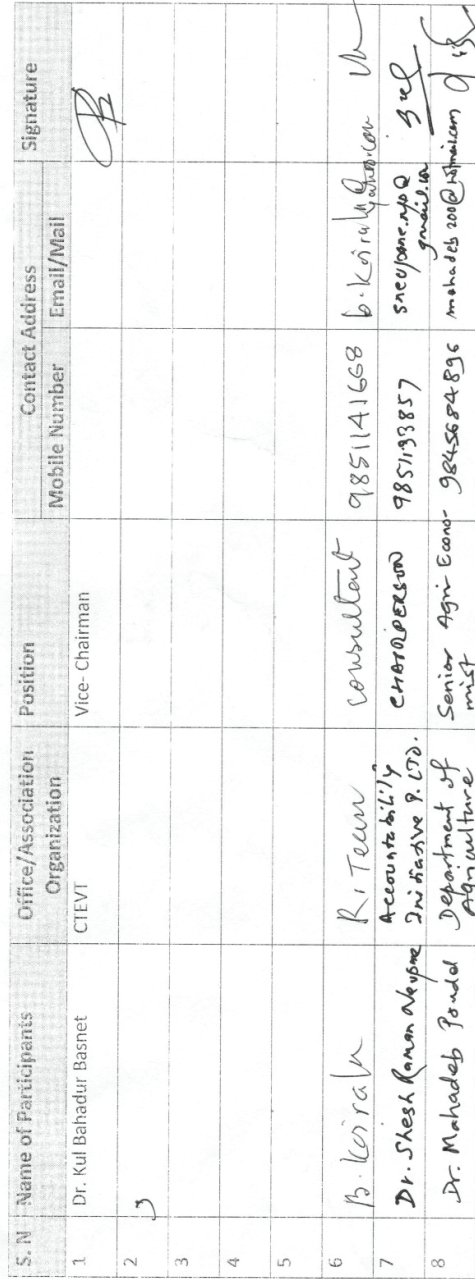 S. N Name of Participants Office/Association Organization Position Contact Address Signature
Mobile Number Email/Mail
1 Dr. Kul Bahadur Basnet CTEVT Vice- Chairman
2
3
4
5
6 B. Koirala R. Team consultant 9851141668 b.koirala@yahoo.com
7 Dr. Shesh Raman Neupane Accountability Initiative P. LTD. CHAIRPERSON 9851193857
8 Dr. Mahadeb Poudel Department of Agriculture Senior Agri Econo-mist 9845684896 mahadeb200@hotmail.com